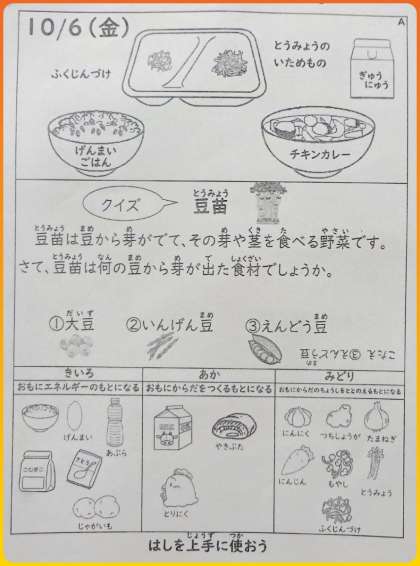 10/6(金)
A
ふくじんづけ
とうみょうの
いためもの
ぎゅう
にゅう
げんまい
ごはん
チキンカレー
クイズ
とうみょう
豆苗
とうみょう まめ め め くき た やさい
豆苗は豆から芽がでて、その芽や茎を食べる野菜です。
とうみょう なん まめ め で しょくざい
さて、豆苗は何の豆から芽が出た食材でしょうか。
だいず まめ まめ
①大豆 ②いんげん豆 ③えんどう豆
まめ
こたえ ③えんどう豆
きいろ あか みどり
おもにエネルギーのもとになる おもにからだをつくるもとになる おもにからだのちょうしをととのえるもとになる
げんまい
あぶら
こむぎこ
さとう
じゃがいも
やきぶた
とりにく
にんにく つちしょうが たまねぎ
にんじん もやし とうみょう
ふくじんづけ
じょうず つか
はしを上手に使おう